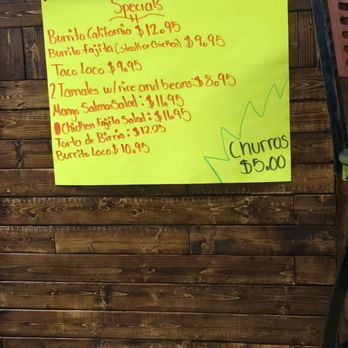 Specials
Burrito California $12.95
Burrito Fajita (steak or chicken) $9.95
Taco Loco $9.95
2 Tamales w/rice and beans: $8.95
Mango Salmon Salad: $16.95
Chicken Fajita Salad: $16.95
Torta de Birria: $12.95
Burrito Loco $10.95
Churros
$5.00